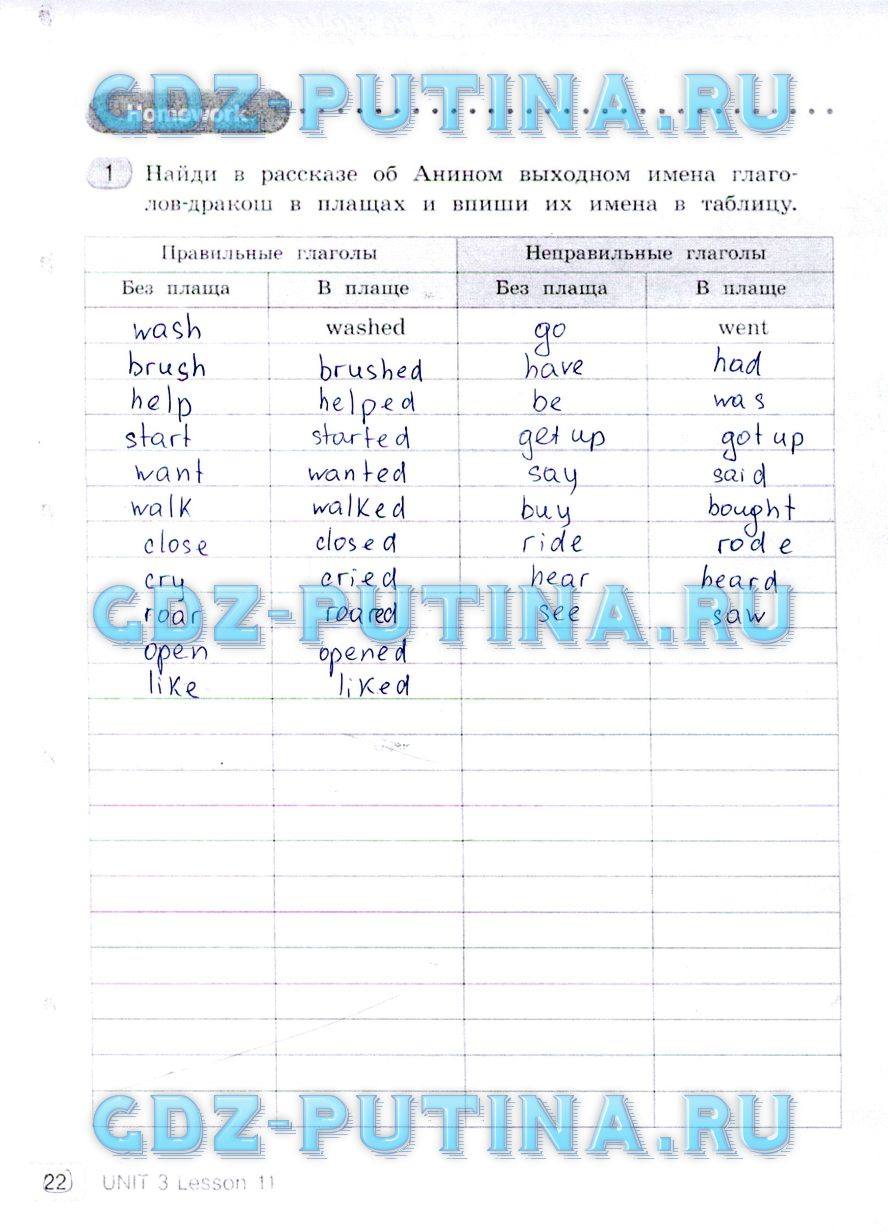 GDZ-PUTINA.RU
Homework
1 Найди в рассказе об Анином выходном имена глаго-
лов-дракош в плащах и впиши их имена в таблицу.
Правильные глаголы Неправильные глаголы
Без плаща В плаще Без плаща В плаще
wash washed go went
brush brushed have had
help helped be was
start started get up got up
want wanted say said
walk walked buy bought
close closed ride rode
cry cried hear heard
GDZ-PUTINA.RU
roar roared see saw
open opened
like liked
GDZ-PUTINA.RU
22 UNIT 3 Lesson 11